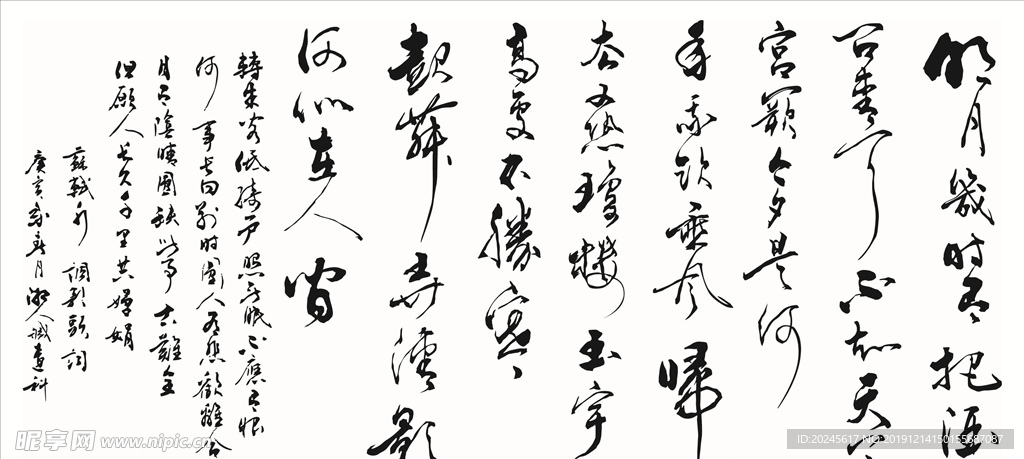 明月幾时有把酒
问青天不知天上
宫闕今夕是何
年我欲乘风歸
去又恐瓊楼玉宇
高处不勝寒
起舞弄清影
何似在人间
轉朱阁低绮户照无眠不應有恨
何事长向别时圆人有悲歡離合
月有陰晴圆缺此事古難全
但願人长久千里共婵娟
蘇軾水调歌頭词
月湘人
昵享网 www.nipic.cn
ID:20245617 NO:20191214150155687087